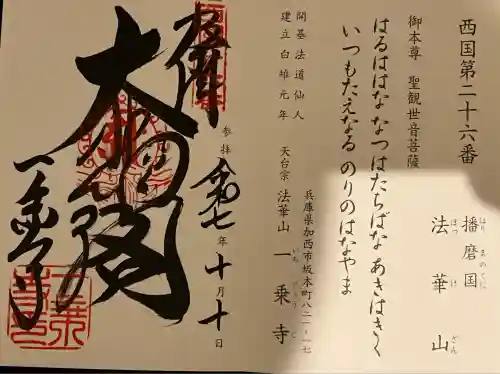 西国第二十六番
播磨国
はり まのくに
法華山
ほつ け ざん
御本尊 聖観世音菩薩
はるははな なつはたちばな あきはきく
いつもたえなる のりのはなやま
兵庫県加西市坂本町八二一ー一七
開基法道仙人
建立白雉元年
天台宗 法華山 一乗寺
いち じょう じ
参拝 令和七年十月十日
大悲閣
一乗寺